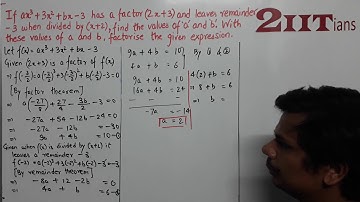 If ax³ + 3x² + bx - 3 has a factor (2x+3) and leaves remainder
-3 when divided by (x+2), find the values of 'a' and 'b'. With
these values of a and b, factorise the given expression.
2IITians
Let f(x) = ax³ + 3x² + bx - 3
Given (2x+3) is a factor of f(x)
[By factor theorem]
⇒ a(-27/8) + 27/4 - 3b/2 - 3 = 0
⇒ -27a + 54 - 12b - 24 = 0
⇒ -27a - 12b = -30
Given when f(x) is divided by (x+2) it
leaves a remainder -3
[By remainder theorem]
⇒ -8a + 12 - 2b = 0
⇒ 4a + b = 6
9a + 4b = 10
4a + b = 6
9a + 4b = 10
16a + 4b = 24
-7a = -14
a = 2
By
4(2) + b = 6
⇒ 8 + b = 6
⇒ b =